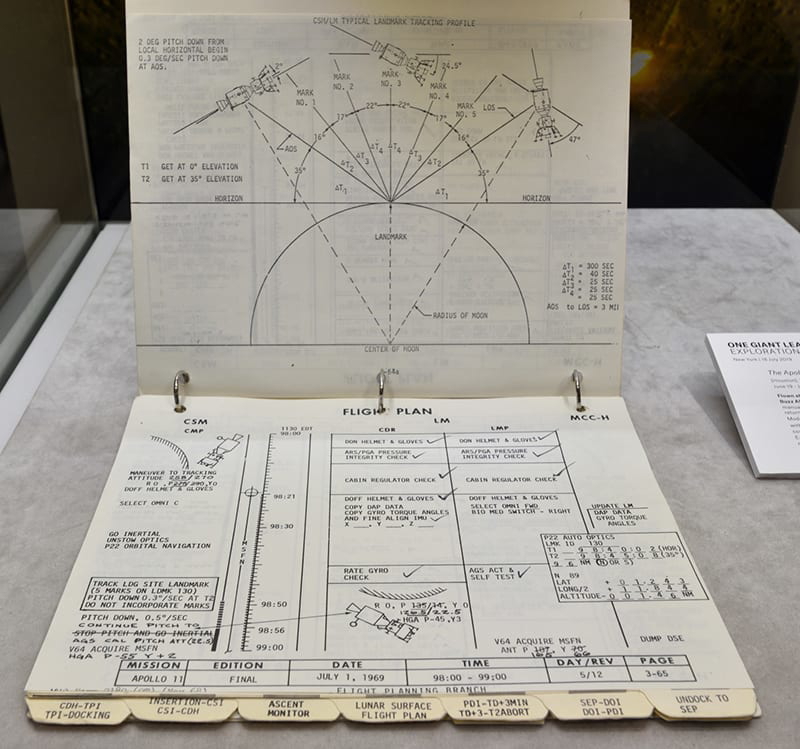 CSM/LM TYPICAL LANDMARK TRACKING PROFILE
2 DEG PITCH DOWN FROM
LOCAL HORIZONTAL BEGIN
0.3 DEG/SEC PITCH DOWN
AT AOS.
2°
24.5°
47°
MARK
NO. 1
MARK
NO. 2
MARK
NO. 3
MARK
NO. 4
MARK
NO. 5
LOS
AOS
17°
22°
22°
17°
16°
16°
35°
35°
T1 GET AT 0° ELEVATION
T2 GET AT 35° ELEVATION
HORIZON
HORIZON
LANDMARK
ΔT1 = 300 SEC
ΔT2 = 40 SEC
ΔT3 = 25 SEC
ΔT4 = 25 SEC
= 25 SEC
AOS to LOS = 3 MI
RADIUS OF MOON
CENTER OF MOON
FLIGHT PLAN
CSM
LM
MCC-H
CMP
CDR
LMP
T130 EDT
98:00
98:21
98:30
98:50
98:56
99:00
MSFN
MANEUVER TO TRACKING
ATTITUDE 288/270
DOFF HELMET & GLOVES
SELECT OMNI C
GO INERTIAL
UNSTOW OPTICS
P22 ORBITAL NAVIGATION
TRACK LDG SITE LANDMARK
(5 MARKS ON LDMK 130)
PITCH DOWN 0.3°/SEC AT T2
DO NOT INCORPORATE MARKS
PITCH DOWN, 0.5°/SEC
CONTINUE PITCH TO
STOP PITCH AND GO INERTIAL
AGS CAL PITCH ATT (22.5)
V64 ACQUIRE MSFN
HGA P-55 Y+2
DON HELMET & GLOVES
ARS/PGA PRESSURE
INTEGRITY CHECK
CABIN REGULATOR CHECK
DOFF HELMET & GLOVES
COPY DAP DATA
COPY GYRO TORQUE ANGLES
AND FINE ALIGN IMU
X ___, Y ___, Z ___
RATE GYRO
CHECK
DON HELMET & GLOVES
ARS/PGA PRESSURE
INTEGRITY CHECK
CABIN REGULATOR CHECK
DOFF HELMET & GLOVES
SELECT OMNI FWD
BIO MED SWITCH - RIGHT
AGS ACT &
SELF TEST
HGA P-45, Y3
V64 ACQUIRE MSFN
UPDATE LM
DAP DATA
GYRO TORQUE
ANGLES
P22 AUTO OPTICS
LMK ID 130
T1 98:40:02 (HOR)
T2 98:45:08 (35°)
N 89
LAT + 01.243
LONG/2 + 11.844
ALTITUDE - 001.46 NM
DUMP DSE
MISSION
EDITION
DATE
TIME
DAY/REV
PAGE
APOLLO 11
FINAL
JULY 1, 1969
98:00 - 99:00
5/12
3-65
FLIGHT PLANNING BRANCH
CDH-TPI
TPI-DOCKING
INSERTION-CSI
CSI-CDH
ASCENT
MONITOR
LUNAR SURFACE
FLIGHT PLAN
PDI-TD+3MIN
TD+3-T2ABORT
SEP-DOI
DOI-PDI
UNDOCK TO
SEP
ONE GIANT LEA
EXPLORATION
New York | 18 July 2019
The Apol